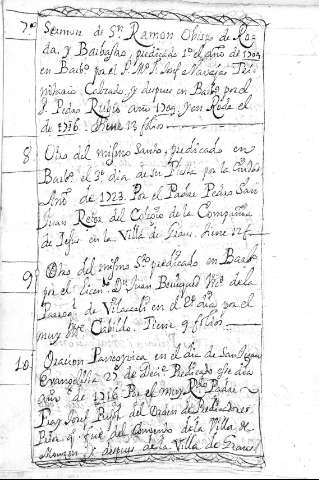 7. Sermon de Sn. Ramon Obispo de Ro
da, y Barbastro, predicado 1º el año de 1703
en Barbº por el P. Mº F. Josef Navajas Tri
nitario Calzado, y despues en Barbº por el
P. Pedro Rubio año 1709. y en Roda el
de 1716. tiene 13 folios
8 Otro del mismo Santo, predicado en
Barbº el 3º dia de su fiesta por la Ciudad
Año de 1723. Por el Padre Pedro San
Juan Retor del Colegio de la Compañia
de Jesus en la Villa de Graus. tiene 12 f
9 Otro del mismo Sto predicado en Barbº
por el Licendo Dn Juan Vicº de la
Parroql de en el 2º dia, por el
muy Iltre Cabildo. Tiene 9 folios
10 Oracion Panegyrica en el dia de San Juan
Evangelista 27 de Decie Predicado este dia
año de 1716 Por el muy Rdo Padre
Fray Josef del Orden de Predicadores
Prior q. fue del Convento de la Villa de
Monzon y despues de la Villa de Graus